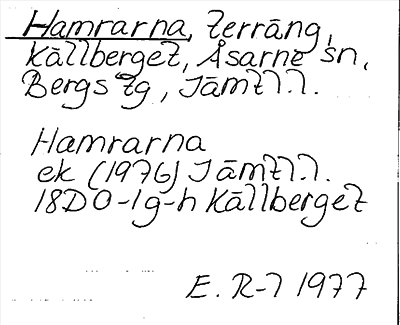 Hamrarna, terräng,
Källberget, Åsarne sn,
Bergs tg, Jämtl.l.
Hamrarna
ek (1976) Jämtl.l.
18D0-1g-h Källberget
E. R-7 1977